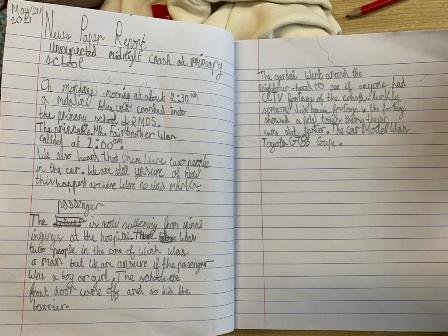 May/24/
2021
News Paper Report
unexpected midnight crash at primary
school
On monday morning at about 12:30am
a crashed into
the primary school of RMDS.
The principle Mr. Fairbrother was
called at 2:00am.
We also heard that there were two people
in the car. We are still unsure of how
this happened as there were no skid marks.
passenger
The is now suffering from spinal
injuries at the hospital. There was
two people in the one of which was
a man but we are unsure if the passenger
was a boy or girl. The schools
front door came off and so did the
barrier.
The gardai went around the
neighbour-hood to see if anyone had
CCTV footage of the crash luckily
someone did have footage the footage
showed a
cars but faster. The car Model was
Toyota GT86 Coupe.